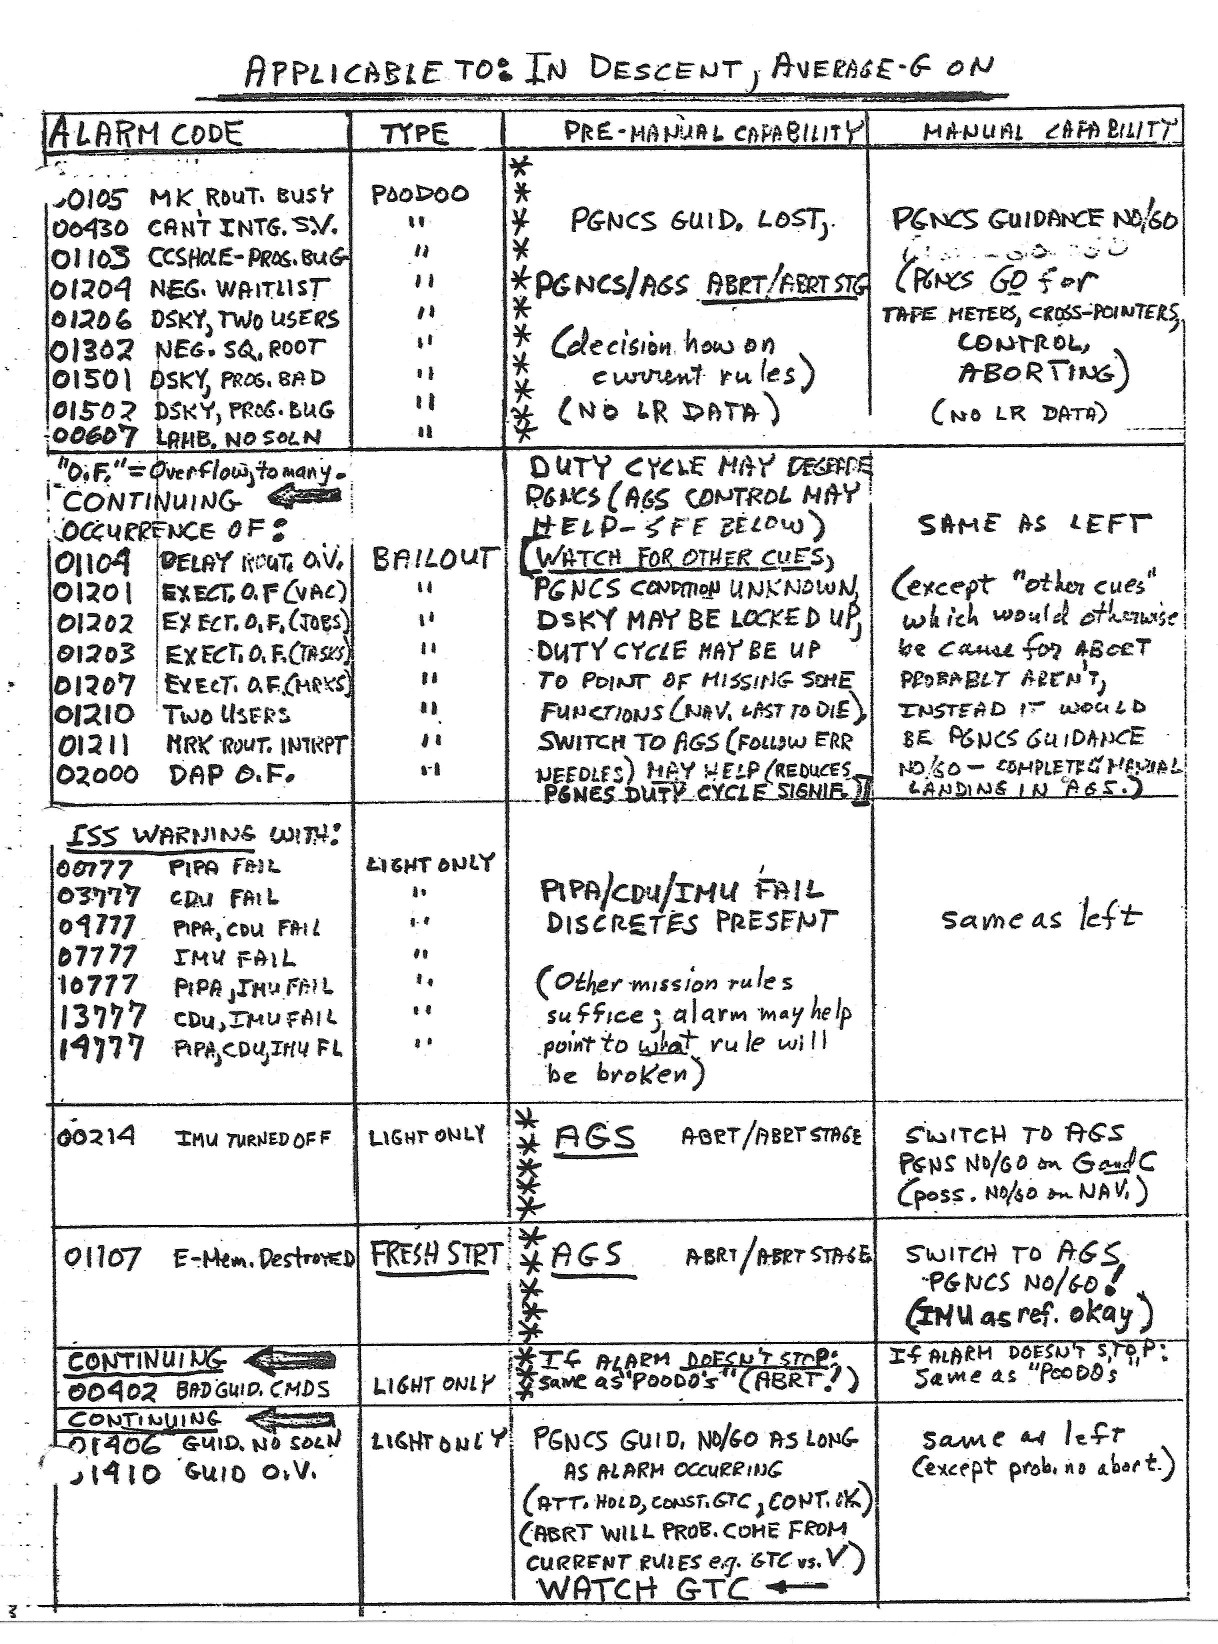 APPLICABLE TO: IN DESCENT, AVERAGE-G ON
ALARM CODE TYPE PRE-MANUAL CAPABILITY MANUAL CAPABILITY
00105 MK ROUT. BUSY POODOO
00430 CAN'T INTG. S.V. "
01103 CCSHOLE-PROG. BUG "
01204 NEG. WAITLIST "
01206 DSKY, TWO USERS "
01302 NEG. SQ. ROOT "
01501 DSKY, PROG. BAD "
01502 DSKY, PROG. BUG "
00607 LAMB. NO SOLN "
* * * * * * * * * *
PGNCS GUID. LOST,
PGNCS/AGS ABRT/ABRT STG
(decision how on
current rules)
(NO LR DATA)
PGNCS GUIDANCE NO/GO
(PGNCS GO for
TAPE METERS, CROSS-POINTERS,
CONTROL,
ABORTING)
(NO LR DATA)
"O.F." = Overflow, to many.
CONTINUING ←
OCCURRENCE OF:
01104 DELAY ROUT. O.V. BAILOUT
01201 EXECT. O.F (VAC) "
01202 EXECT. O.F. (JOBS) "
01203 EXECT. O.F. (TASKS) "
01207 EXECT. O.F. (MRKS) "
01210 TWO USERS "
01211 MRK ROUT. INTRPT "
02000 DAP O.F. "
DUTY CYCLE MAY DEGRADE
PGNCS (AGS CONTROL MAY
HELP - SEE BELOW)
(WATCH FOR OTHER CUES,
PGNCS CONDITION UNKNOWN,
DSKY MAY BE LOCKED UP,
DUTY CYCLE MAY BE UP
TO POINT OF MISSING SOME
FUNCTIONS (NAV. LAST TO DIE),
SWITCH TO AGS (FOLLOW ERR
NEEDLES) MAY HELP (REDUCES
PGNCS DUTY CYCLE SIGNIF.))
SAME AS LEFT
(except "other cues"
which would otherwise
be cause for ABORT
PROBABLY AREN'T,
INSTEAD IT WOULD
BE PGNCS GUIDANCE
NO/GO - COMPLETELY MANUAL
LANDING IN AGS.)
ISS WARNING WITH:
00777 PIPA FAIL LIGHT ONLY
03777 CDU FAIL "
04777 PIPA, CDU FAIL "
07777 IMU FAIL "
10777 PIPA, IMU FAIL "
13777 CDU, IMU FAIL "
14777 PIPA, CDU, IMU FL "
PIPA/CDU/IMU FAIL
DISCRETES PRESENT
(Other mission rules
suffice; alarm may help
point to what rule will
be broken)
same as left
00214 IMU TURNED OFF LIGHT ONLY * * * * * AGS ABRT/ABRT STAGE
SWITCH TO AGS
PGNS NO/GO on G and C
(poss. NO/GO on NAV.)
01107 E-Mem. Destroyed FRESH STRT * * * * * AGS ABRT/ABRT STAGE
SWITCH TO AGS,
PGNCS NO/GO!
(IMU as ref. okay)
CONTINUING ←
00402 BAD GUID. CMDS LIGHT ONLY
* If ALARM DOESN'T STOP:
* same as "POODO's" (ABRT!)
If ALARM DOESN'T STOP:
Same as "POODOs
CONTINUING ←
01406 GUID. NO SOLN LIGHT ONLY
01410 GUID O.V.
PGNCS GUID. NO/GO AS LONG
AS ALARM OCCURRING
(ATT. HOLD, CONST. GTC, CONT. OK)
(ABRT WILL PROB. COME FROM
CURRENT RULES e.g. GTC vs. V)
WATCH GTC ←
same as left
(except prob. no abort.)
3